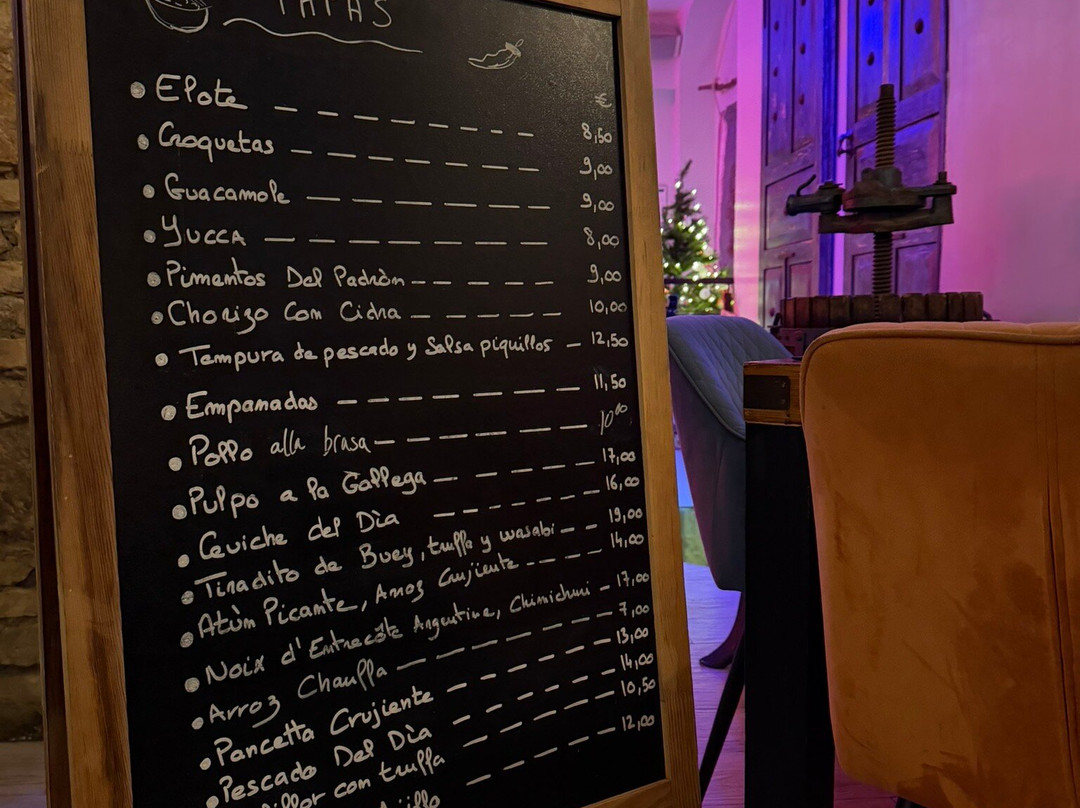 TAPAS
€
Elote 8,50
Croquetas 9,00
Guacamole 9,00
Yucca 8,00
Pimentos Del Padròn 9,00
Chorizo Con Cidra 10,00
Tempura de pescado y Salsa piquillos 12,50
Empanadas 11,50
Pollo alla brasa 10⁰⁰
Pulpo a la Gallega 17,00
Ceviche del Dìa 16,00
Tiradito de Buey, truffa y wasabi 19,00
Atùn Picante, Arroz Crujiente 14,00
Noix d'Entrecôte Argentine, Chimichuri 17,00
Arroz Chauffa 7,00
Pancetta Crujiente 13,00
Pescado Del Dìa 14,00
con truffa 10,50
12,00